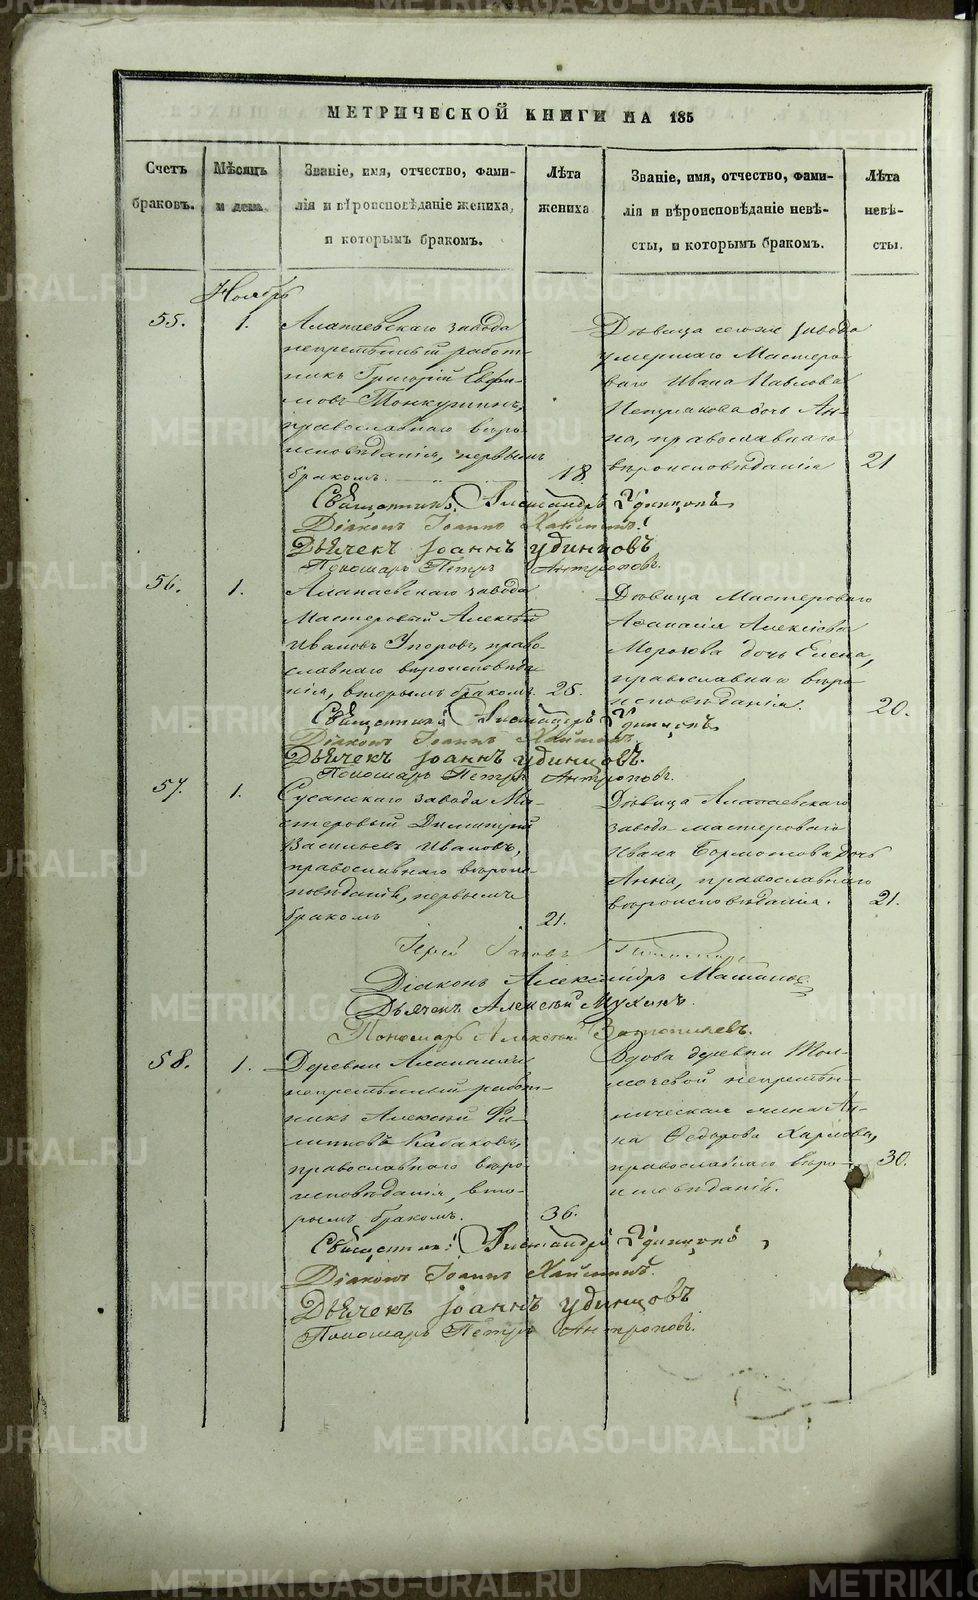 МЕТРИЧЕСКОЙ КНИГИ НА 185
Счетъ браковъ.
Мѣсяцъ и день.
Званіе, имя, отчество, фами-
лія и вѣроисповѣданіе жениха,
и которымъ бракомъ.
Лѣта
жениха
Званіе, имя, отчество, фами-
лія и вѣроисповѣданіе невѣ-
сты, и которымъ бракомъ.
Лѣта
невѣ-
сты.
Ноябрь
55.
1.
Алапаевскаго завода
непремѣнный работ-
никъ Григорій Евфи-
мовъ
православнаго вѣро-
исповѣданія, первымъ
бракомъ.
18.
Дѣвица сегоже завода
умершаго Мастеро-
ваго Ивана Павлова
дочь Ан-
на, православнаго
вѣроисповѣданія
21
Священникъ Александръ Удинцовъ
Діаконъ Іоаннъ
Дьячекъ Іоаннъ Удинцовъ
Пономарь Петръ Антроповъ.
56.
1.
Алапаевскаго завода
Мастеровый Алексѣй
Ивановъ право-
славнаго вѣроисповѣда-
нія, вторымъ бракомъ.
25.
Дѣвица Мастероваго
Аѳанасія Алексѣева
Морозова дочь Елена,
православнаго вѣро-
исповѣданія.
20.
Священникъ Александръ Удинцовъ
Діаконъ Іоаннъ
Дьячекъ Іоаннъ Удинцовъ.
Пономарь Петръ Антроповъ.
57.
1.
Сусанскаго завода Ма-
стеровый Димитрій
Васильевъ Ивановъ,
православнаго вѣроис-
повѣданія, первымъ
бракомъ
21.
Дѣвица Алапаевскаго
завода мастероваго
Ивана Бормотова дочь
Анна, православнаго
вѣроисповѣданія.
21.
Іерей
Діаконъ Александръ
Дьячекъ Алексѣй Мухинъ.
Пономарь Алексѣй
58.
1.
Деревни
непремѣнный работ-
никъ Алексѣй Фи-
липповъ Кабаковъ,
православнаго вѣро-
исповѣданія, вто-
рымъ бракомъ.
36.
Вдова деревни Тол-
мачевой непремѣн-
ническая жена Ан-
на Ѳедорова Харлова,
православнаго вѣро-
исповѣданія.
30.
Священникъ Александръ Удинцовъ
Діаконъ Іоаннъ
Дьячекъ Іоаннъ Удинцовъ
Пономарь Петръ Антроповъ.
METRIKI.GASO-URAL.RU